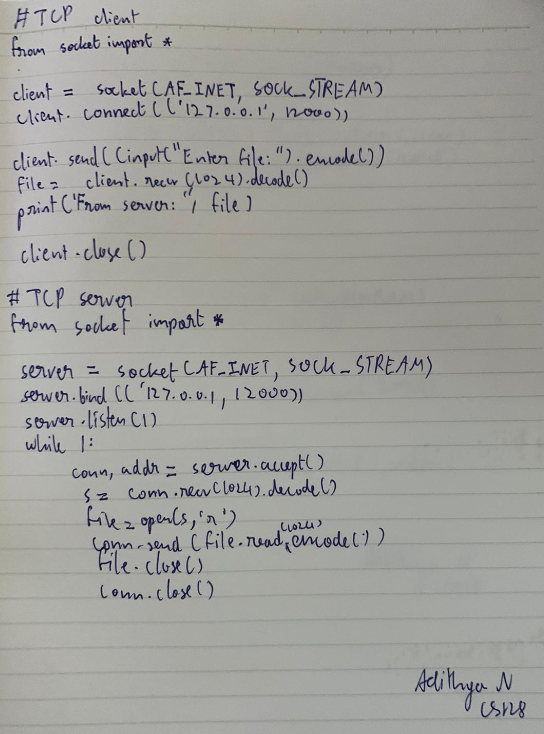 # TCP client
from socket import *
client = socket(AF_INET, SOCK_STREAM)
client.connect(('127.0.0.1', 12000))
client.send((input("Enter file:").encode())
file = client.recv(1024).decode()
print('From server:", file)
client.close()
# TCP server
from socket import *
server = socket(AF_INET, SOCK_STREAM)
server.bind(('127.0.0.1, 12000))
server.listen(1)
while 1:
conn, addr = server.accept()
s = conn.recv(1024).decode()
file = open(s,'r')
conn.send(file.read(1024).encode())
file.close()
conn.close()
Adithya N
CS128